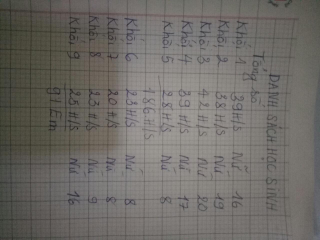 DANH SÁCH HỌC SINH
Tổng số
Khối 1 39 H/S Nữ 16
Khối 2 38 H/S Nữ 19
Khối 3 42 H/S Nữ 20
Khối 4 39 H/S Nữ 17
Khối 5 28 H/S Nữ 8
186 H/S
Khối 6 23 H/S Nữ 8
Khối 7 20 H/S Nữ 8
Khối 8 23 H/S Nữ 9
Khối 9 25 H/S Nữ 16
91 Em